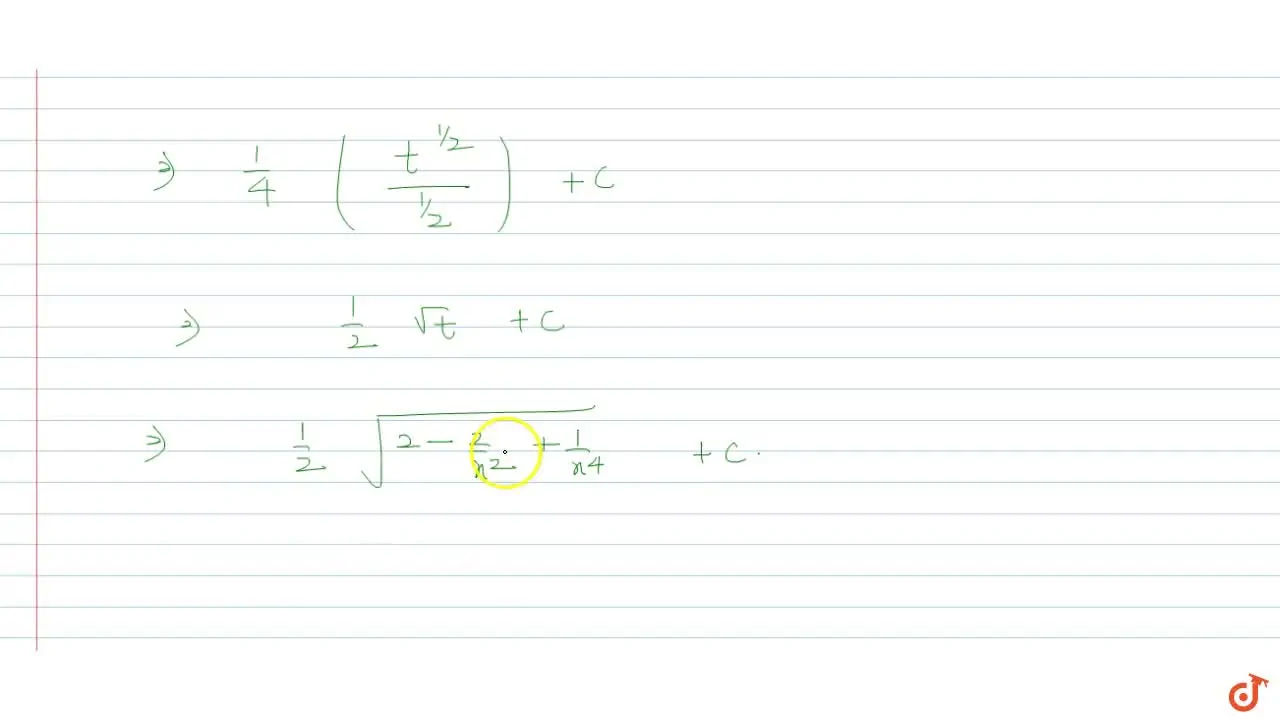 ⇒ 1/4 ( t^{1/2} / 1/2 ) + C
⇒ 1/2 √t + C
⇒ 1/2 √(2 - 2/x^2 + 1/x^4) + C.